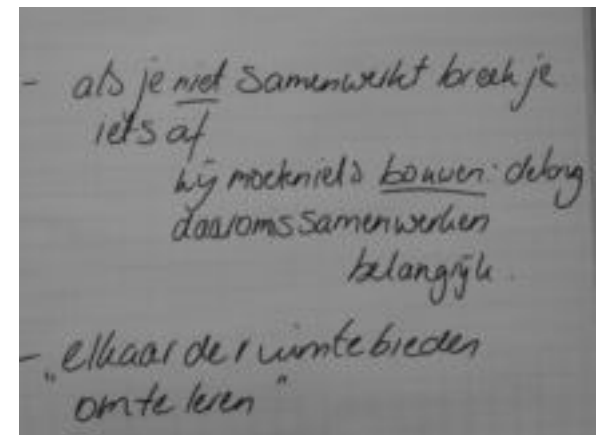 - als je niet samenwerkt breek je
iets af
wij moeten iets bouwen
daarom is samenwerken
belangrijk.
- "elkaar de ruimte bieden
om te leren"